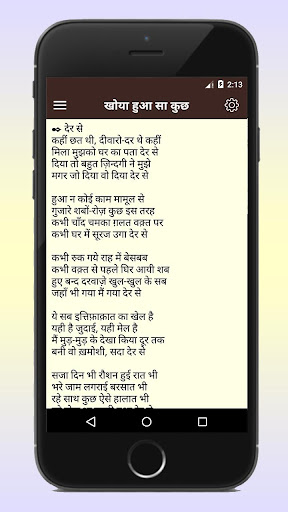 2:13
खोया हुआ सा कुछ
➺ देर से
कहीं छत थी, दीवारो-दर थे कहीं
मिला मुझको घर का पता देर से
दिया तो बहुत ज़िन्दगी ने मुझे
मगर जो दिया वो दिया देर से
हुआ न कोई काम मामूल से
गुजारे शबों-रोज़ कुछ इस तरह
कभी चाँद चमका ग़लत वक़्त पर
कभी घर में सूरज उगा देर से
कभी रुक गये राह में बेसबब
कभी वक़्त से पहले घिर आयी शब
हुए बन्द दरवाज़े खुल-खुल के सब
जहाँ भी गया मैं गया देर से
ये सब इत्तिफ़ाक़ात का खेल है
यही है जुदाई, यही मेल है
मैं मुड़-मुड़ के देखा किया दूर तक
बनी वो ख़मोशी, सदा देर से
सजा दिन भी रौशन हुई रात भी
भरे जाम लगराई बरसात भी
रहे साथ कुछ ऐसे हालात भी